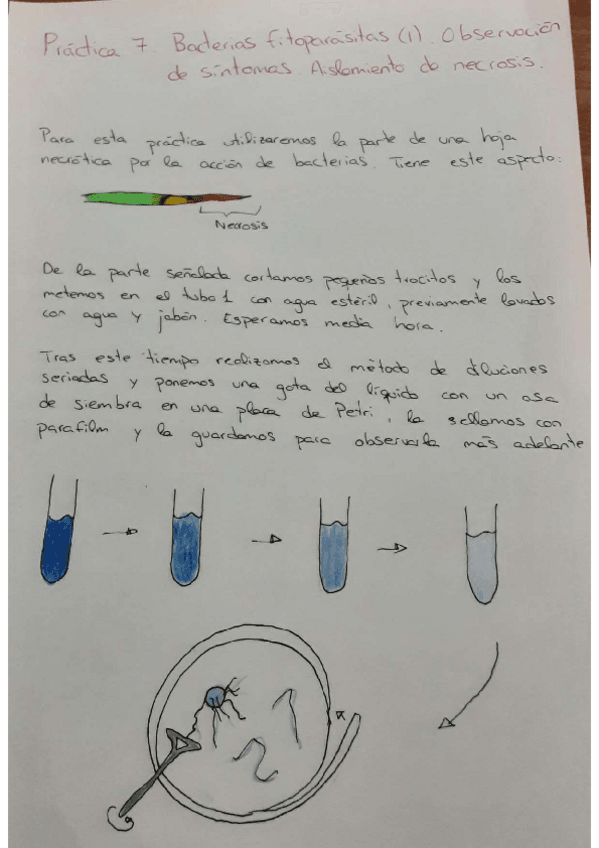 Práctica 7. Bacterias fitoparásitas (1). Observación
de síntomas. Aislamiento de necrosis.
Para esta práctica utilizaremos la parte de una hoja
necrótica por la acción de bacterias. Tiene este aspecto:
Necrosis
De la parte señalada cortamos pequeños trocitos y los
metemos en el tubo 1 con agua estéril, previamente lavados
con agua y jabón. Esperamos media hora.
Tras este tiempo realizamos el método de diluciones
seriadas y ponemos una gota del líquido con un asa
de siembra en una placa de Petri, la sellamos con
parafilm y la guardamos para observarla más adelante